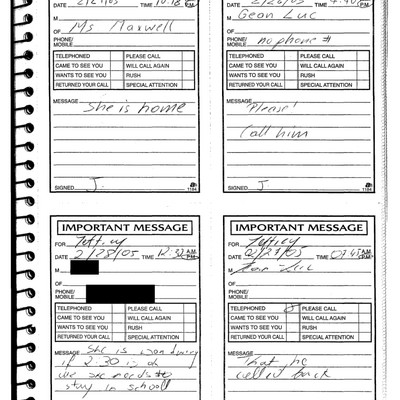 DATE 2/27/05 TIME 10:18 P.M.
M Ms Maxwell
PHONE/
MOBILE
TELEPHONED PLEASE CALL
CAME TO SEE YOU WILL CALL AGAIN
WANTS TO SEE YOU RUSH
RETURNED YOUR CALL SPECIAL ATTENTION
MESSAGE She is home
SIGNED J. 1184
DATE 2/26/05 TIME P.M.
M Gean Luc
PHONE/
MOBILE no phone #
TELEPHONED PLEASE CALL
CAME TO SEE YOU WILL CALL AGAIN
WANTS TO SEE YOU RUSH
RETURNED YOUR CALL SPECIAL ATTENTION
MESSAGE Please!
Call him
SIGNED J 1184
IMPORTANT MESSAGE
FOR Jeffrey
DATE 2/28/05 TIME 12:32 A.M. P.M.
M
PHONE/
MOBILE
TELEPHONED PLEASE CALL
CAME TO SEE YOU WILL CALL AGAIN
WANTS TO SEE YOU RUSH
RETURNED YOUR CALL SPECIAL ATTENTION
MESSAGE She is wondering
if 2:30 is ok
she needs to
stay in school
IMPORTANT MESSAGE
FOR Jeffrey
DATE 2/27/05 TIME 07:45 A.M. P.M.
M Jean Luc
PHONE/
MOBILE
TELEPHONED PLEASE CALL
CAME TO SEE YOU WILL CALL AGAIN
WANTS TO SEE YOU RUSH
RETURNED YOUR CALL SPECIAL ATTENTION
MESSAGE
That he
called back